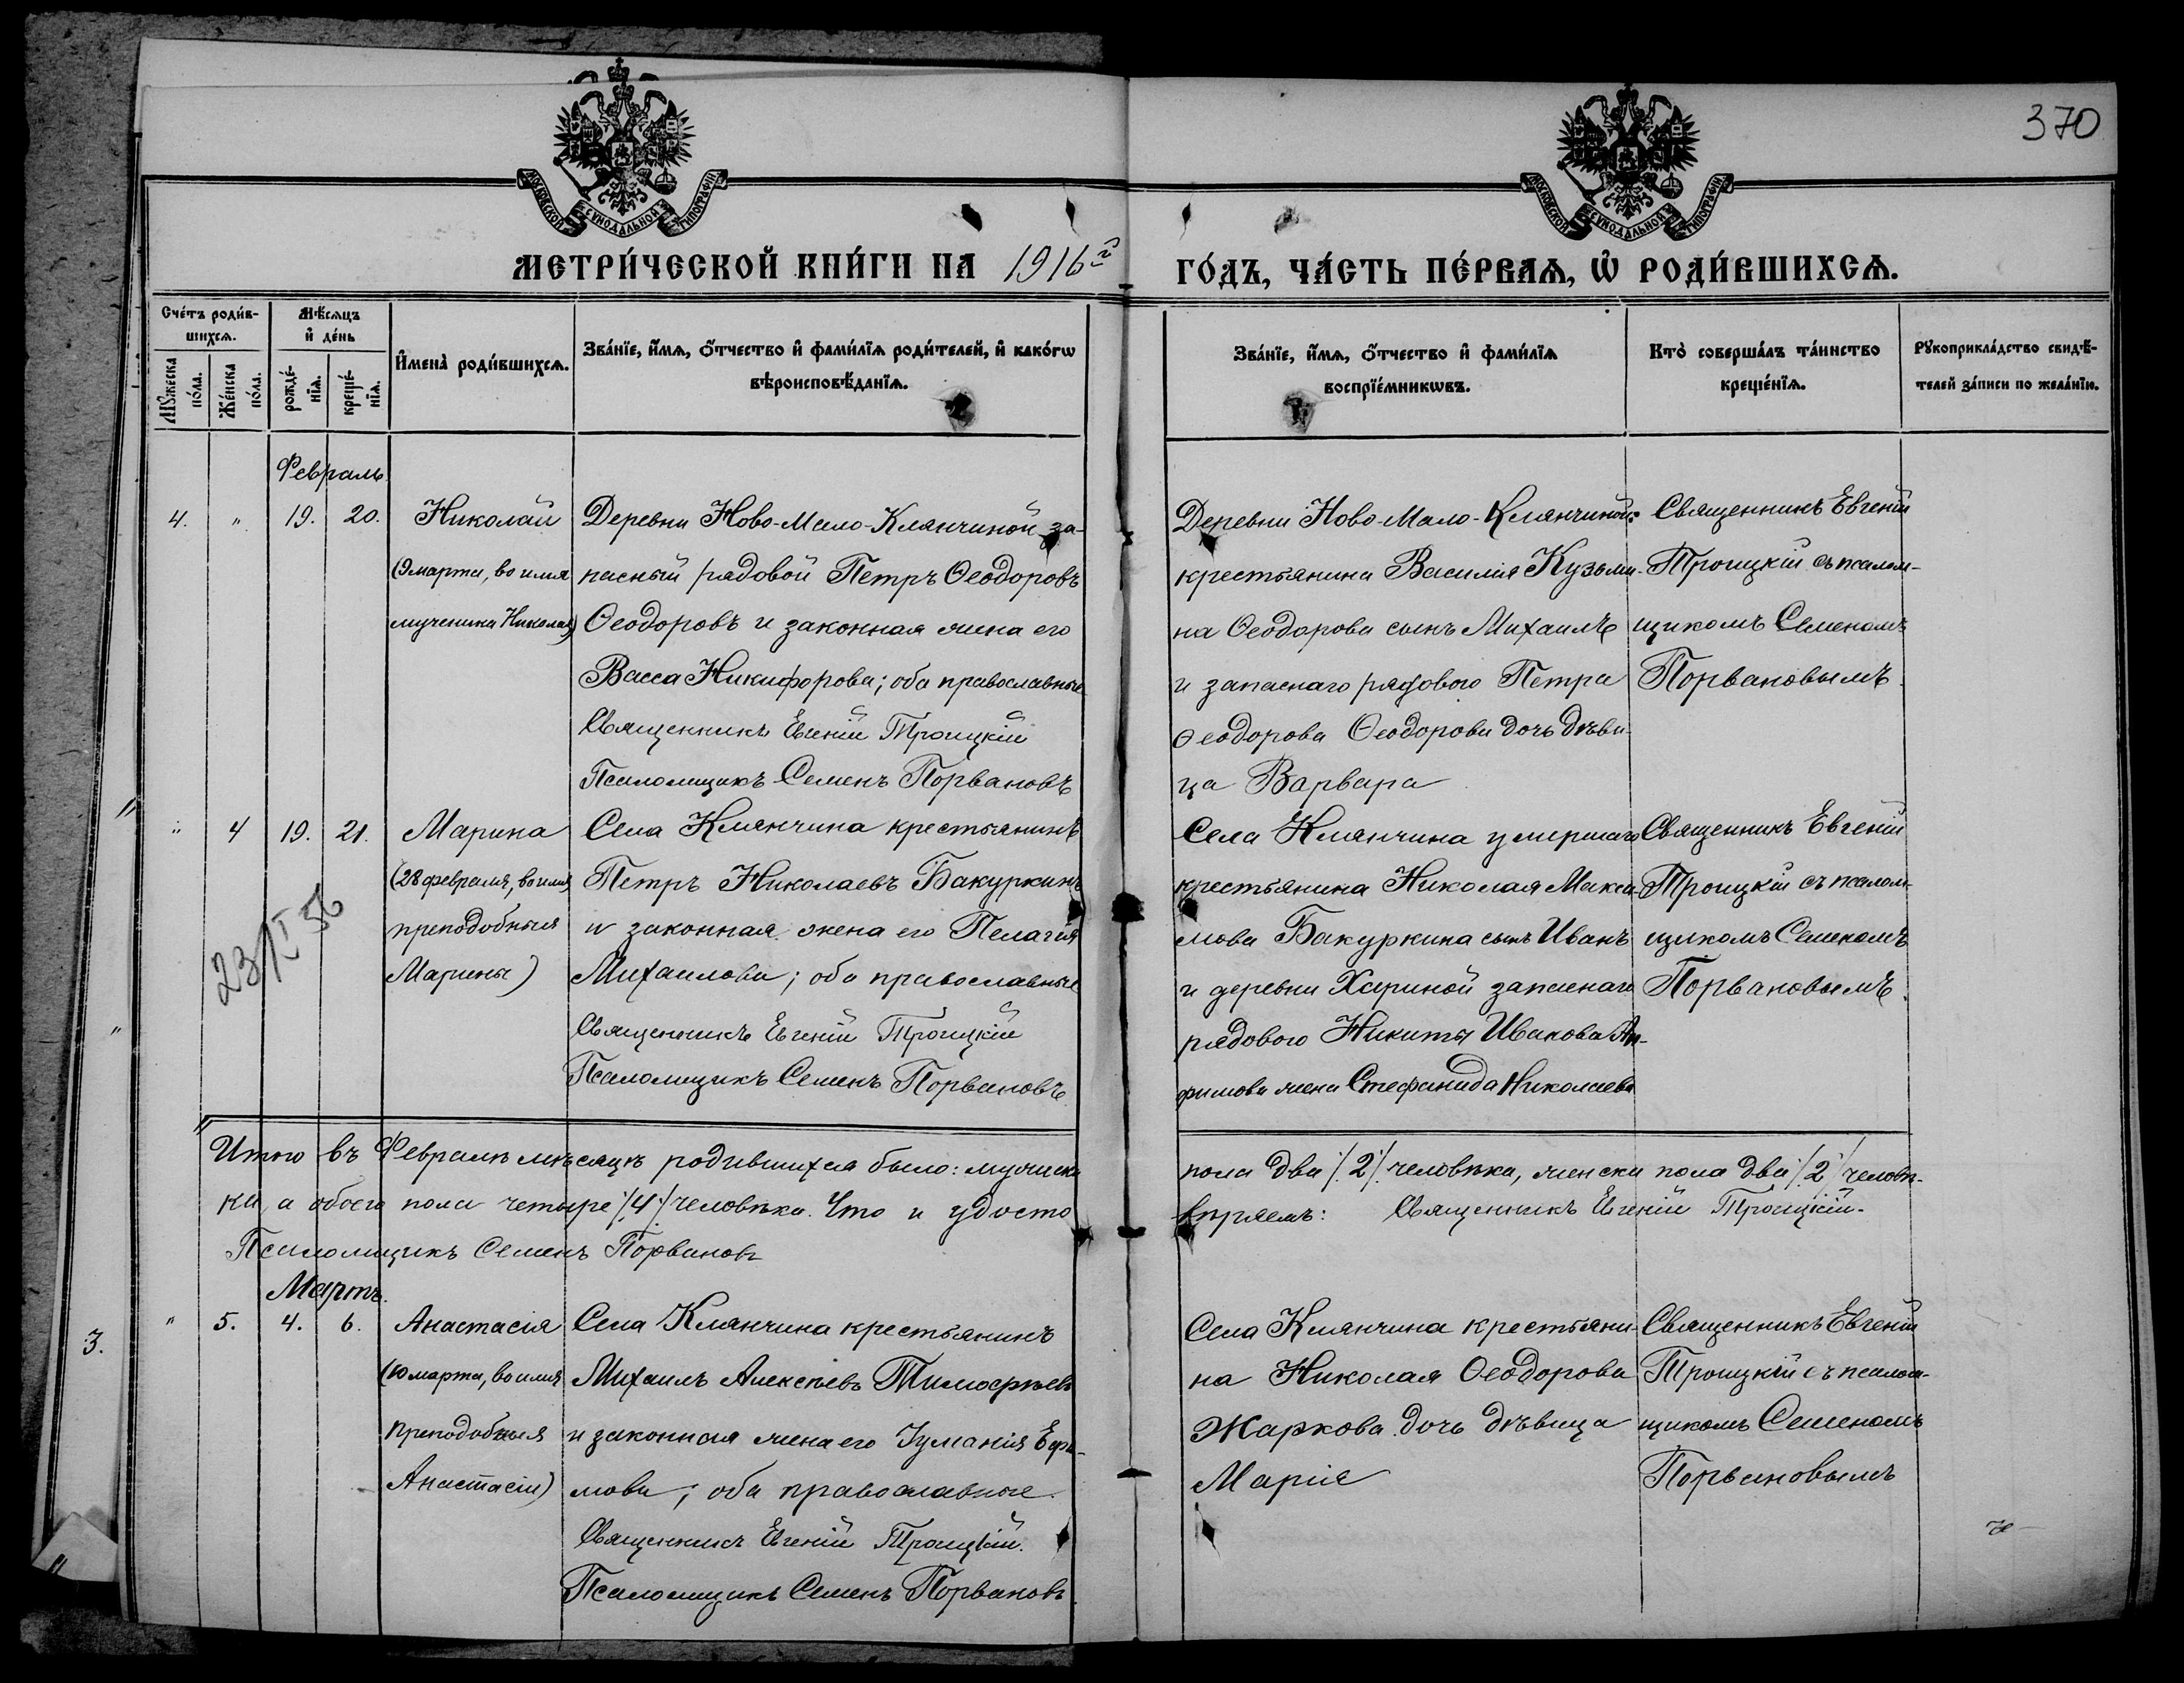 370
МОСКОВСКОЙ СѴНОДАЛЬНОЙ ТИПОГРАФІИ
МОСКОВСКОЙ СѴНОДАЛЬНОЙ ТИПОГРАФІИ
МЕТРИ́ЧЕСКОЙ КНИ́ГИ НА 1916й ГО́ДЪ, ЧА́СТЬ ПЕ́РВАѦ, Ѡ҆ РОДИ́ВШИХСѦ.
Сче́тъ роди́в-
шихсѧ.
Мꙋ́жеска по́ла.
Же́нска по́ла.
Мѣ́сѧцъ
и҆ де́нь
рожде́-
нїѧ.
креще́-
нїѧ.
И҆мена̀ роди́вшихсѧ.
Зва́нїе, и҆́мѧ, ѻ҆́тчество и҆ фами́лїѧ роди́телей, и҆ како́гѡ
вѣроисповѣ́данїѧ.
Зва́нїе, и҆́мѧ, ѻ҆́тчество и҆ фами́лїѧ
воспрїе́мникѡвъ.
Кто̀ соверша́лъ та́инство
креще́нїѧ.
Рꙋкоприкла́дство свидѣ́-
телей за́писи по жела́нїю.
Февраль
4. " 19. 20.
Николай
(9 марта, во имя
мученика Николая)
Деревни Ново-Мало-Клянчиной за-
пасный рядовой Петръ Ѳеодоровъ
Ѳеодоровъ и законная жена его
Васса Никифорова; оба православные
Священникъ Евгеній Троицкій
Псаломщикъ Семенъ Порвановъ
Деревни Ново-Мало-Клянчиной:
крестьянина Василія Кузьми-
на Ѳеодорова сынъ Михаилъ
и запаснаго рядового Петра
Ѳеодорова Ѳеодорова дочь дѣви-
ца Варвара
Священникъ Евгеній
Троицкій съ псалом-
щикомъ Семеномъ
Порвановымъ.
" 4 19. 21.
23/I 56
Марина
(28 февраля, во имя
преподобныя
Марины)
Села Клянчина крестьянинъ
Петръ Николаевъ Бакуркинъ
и законная жена его Пелагія
Михаилова; оба православные
Священникъ Евгеній Троицкій
Псаломщикъ Семенъ Порвановъ
Села Клянчина умершаго
крестьянина Николая Макси-
мова Бакуркина сынъ Иванъ
и деревни Хариной запаснаго
рядового Никиты Иванова Ан-
фимова жена Стефанида Николаева
Священникъ Евгеній
Троицкій съ псалом-
щикомъ Семеномъ
Порвановымъ.
Итого въ Февралѣ мѣсяцѣ родившихся было: мужеска
пола два /2/ человѣка, женска пола два /2/ человѣ-
ка, а обоего пола четыре /4/ человѣка. Что и удосто
вѣряемъ: Священникъ Евгеній Троицкій.
Псаломщикъ Семенъ Порвановъ
Мартъ.
3.
" 5. 4. 6.
Анастасія
(10 марта, во имя
преподобныя
Анастасіи)
Села Клянчина крестьянинъ
Михаилъ Алексѣевъ Тимоѳеевъ
и законная жена его Іуліанія Ефи-
мова; оба православные.
Священникъ Евгеній Троицкій.
Псаломщикъ Семенъ Порвановъ
Села Клянчина крестьяни-
на Николая Ѳеодорова
Жаркова дочь дѣвица
Марія
Священникъ Евгеній
Троицкій съ псалом-
щикомъ Семеномъ
Порвановымъ